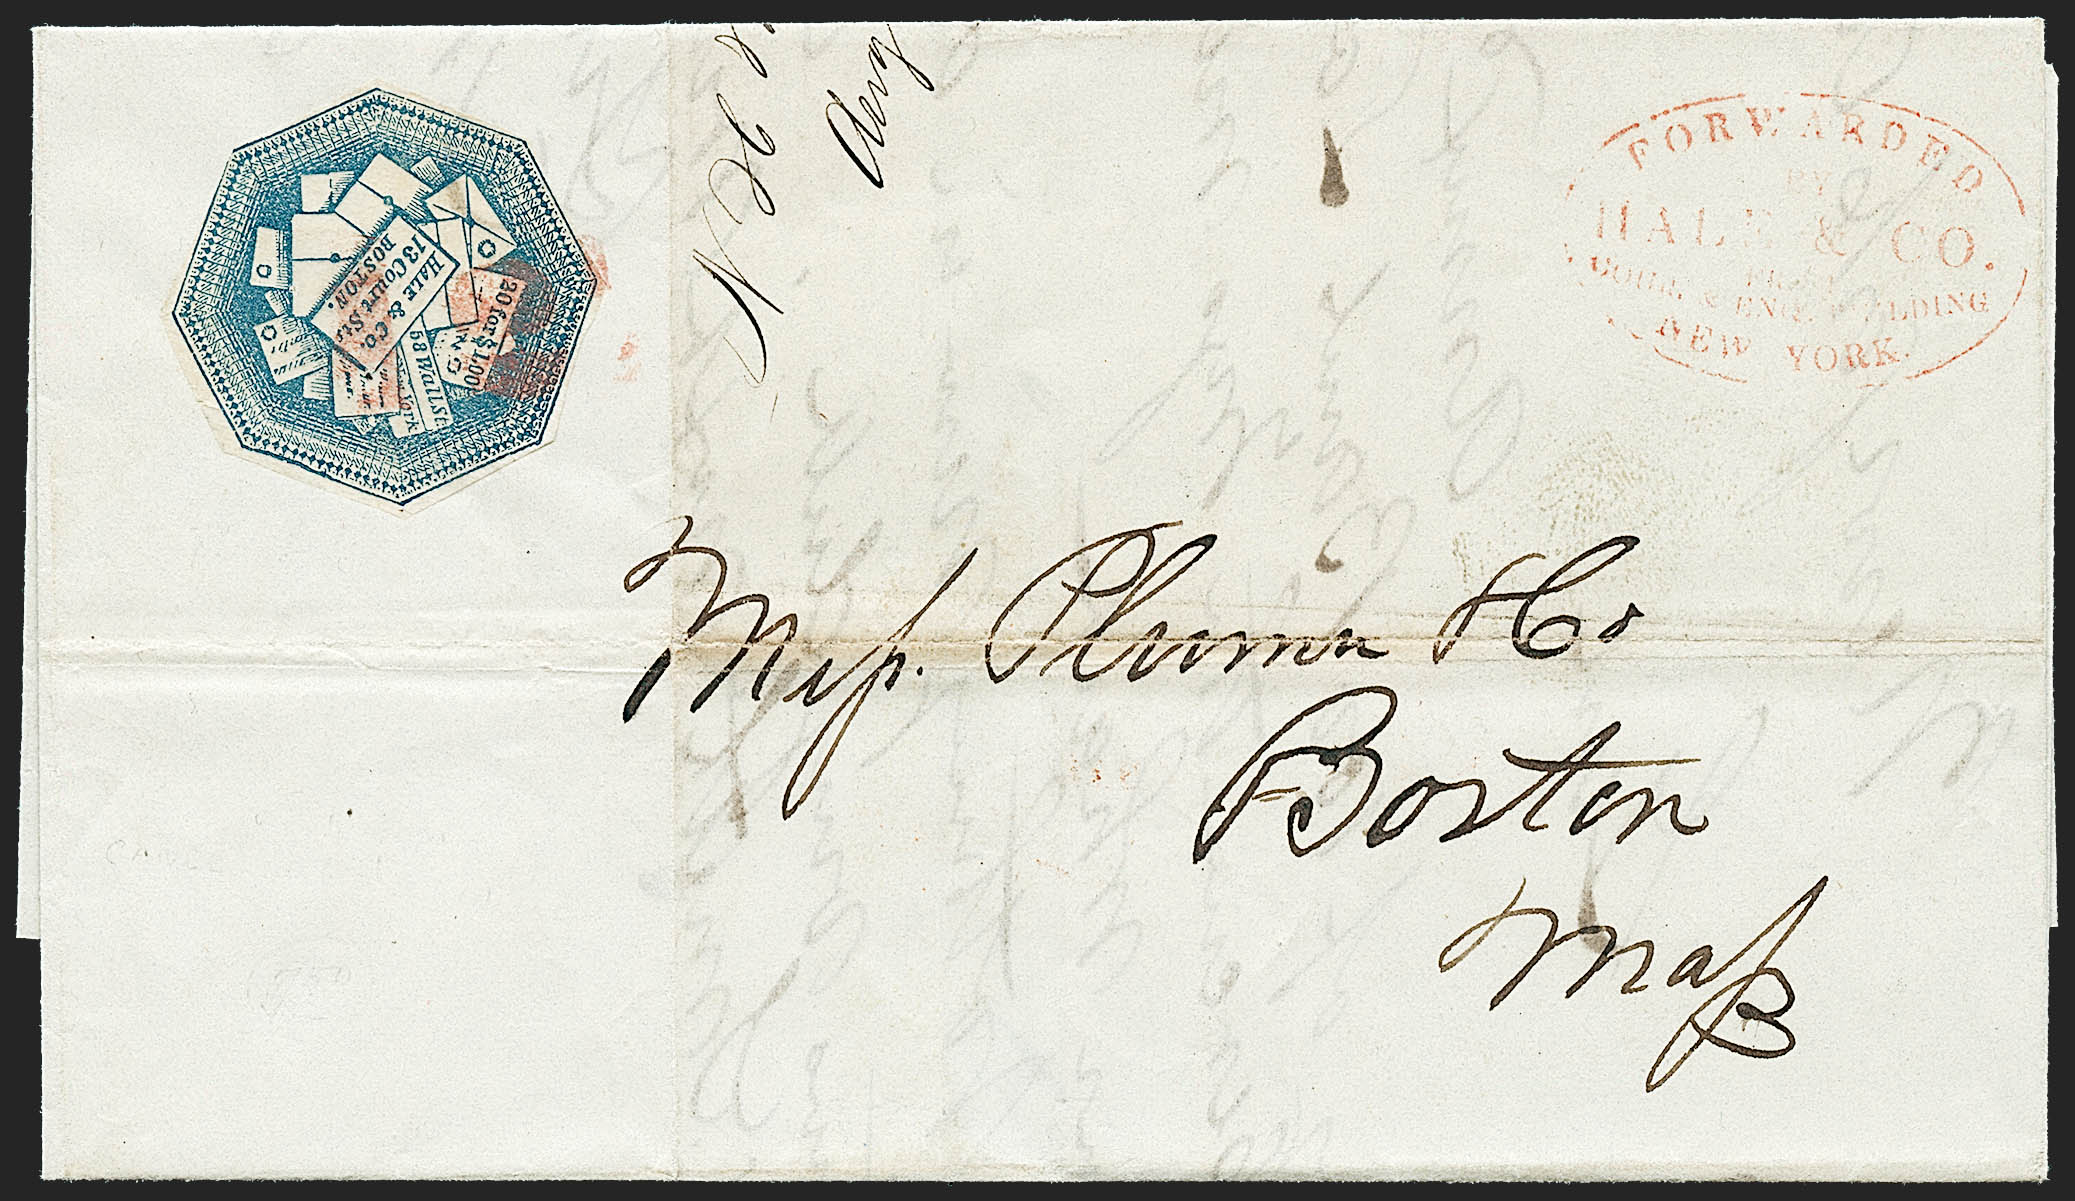 HALE & CO.
13 Court St
BOSTON.
20 for $1.00
58 Wall St
N
Aug
FORWARDED
BY
HALE & CO.
FROM
& BUILDING
NEW YORK.
Meſs. Plumer & Co
Boston
Maſs